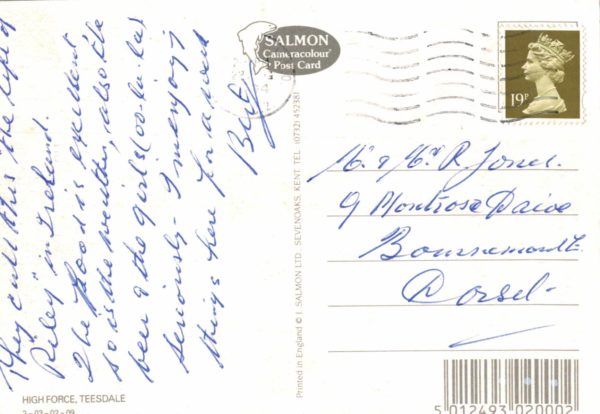 They call this "the life of
Riley" in Ireland.
The food is excellent
so is the weather, also the
beer & the girls (oo-la-la)
Seriously - I'm enjoying
things here for a week
Bert
SALMON
Cameracolour
Post Card
19P
Mr & Mrs R. Jones.
9 Montrose Drive
Bournemouth
Dorset
Printed in England © J. SALMON LTD. SEVENOAKS, KENT. TEL: (0732) 452381
HIGH FORCE, TEESDALE
2-03-02-09
5 012493 020002